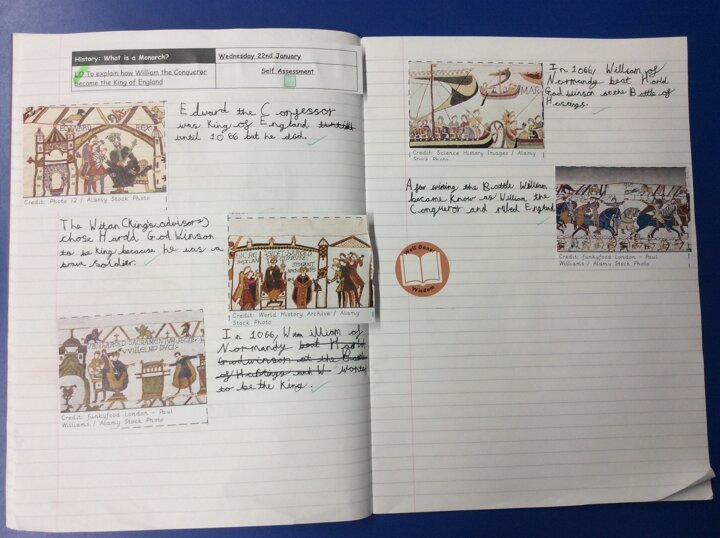 History: What is a Monarch?
Wednesday 22nd January
LO To explain how William the Conqueror
became the King of England
Self Assessment
EDWARD REX
Credit: Photo 12 / Alamy Stock Photo
Edward the Confessor
was King of England
until 1066 but he died.
The Witan (King's advisors)
chose Harold Godwinson
to be King because he was a
brave soldier.
Credit: World History Archive / Alamy
Stock Photo
Credit: funkyfood London - Paul
Williams / Alamy Stock Photo
In 1066, William of
Normandy beat Harold
Godwinson at the Battle
of Hastings and W wanted
to be the King.
MAR
Credit: Science History Images / Alamy
Stock Photo
In 1066, William of
Normandy beat Harold
Godwinson at the Battle of
Hastings.
After wining the Battle William
became Know as William the
Conqueror and ruled England
Credit: funkyfood London - Paul
Williams / Alamy Stock Photo
Well Done!
Wisdom